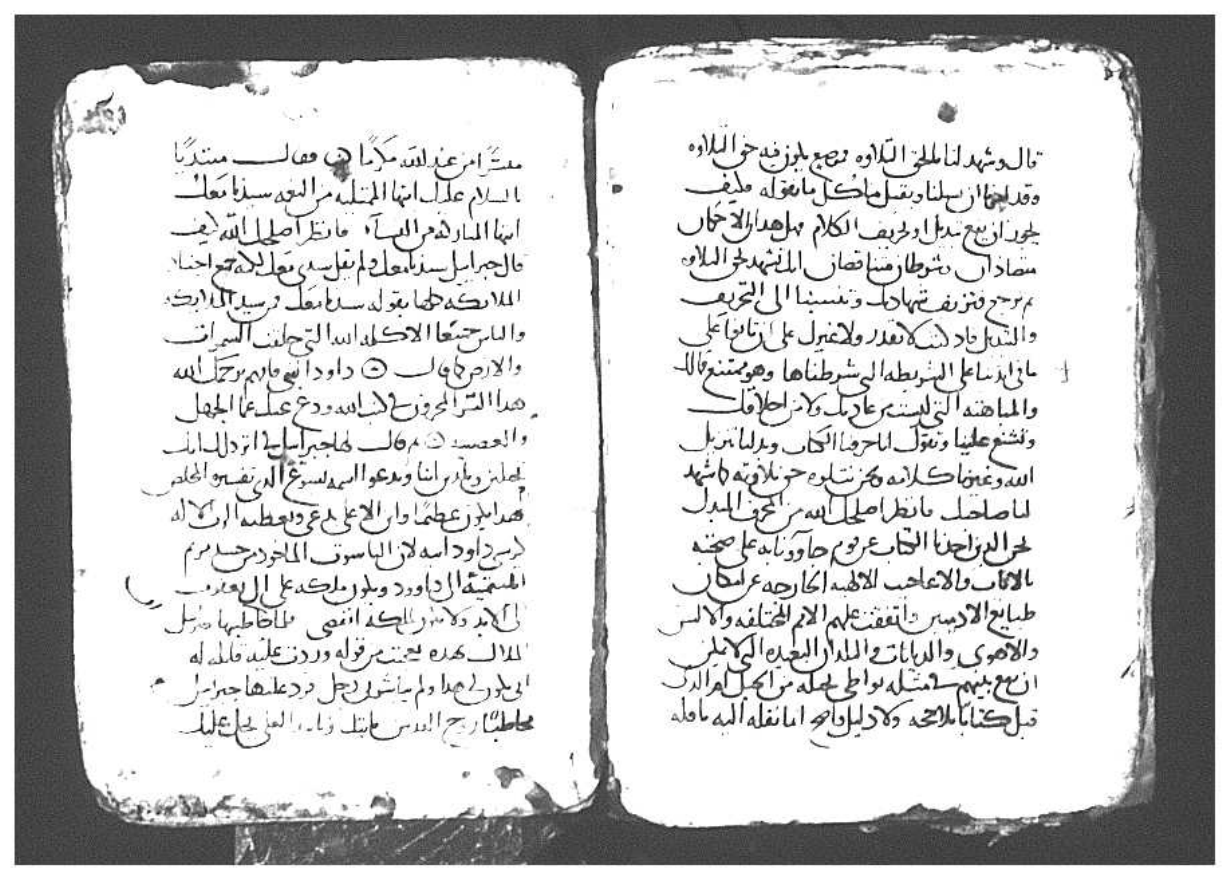 قال وشهد لنا بالحق التلاوه فموضع يكون فيه حق التلاوه
وقد لنا ونقبل ما كل ما نقوله فكيف
يجوز ان يقع تبديل او تحريف الكلام فهل هذان الا حكمان
متضادان وشرطان متناقضان انك تشهد بحق التلاوه
ثم ترجع فتزيف شهادتك وتنسبنا الى التحريف
والتبديل فاد كنت لا تقدر ولا غيرك على ان تاتونا على
ما في ايدينا على الشريطه التي شرطناها وهو ممتنع فمالك
والمباهته التي ليست من عادتك ولا من اخلاقك
وتشنع علينا وتقول اننا حرفنا الكتاب وبدلنا تنزيل
الله وغيرنا كلامه ونحن نتلوه حق تلاوته كما شهد
لنا صاحبك فانظر اصلحك الله من المحرف المبدل
نحن الدين احدنا الكتاب عن قوم جاوونا به على صحته
بالايات والاعاجيب الالهيه الخارجه عن امكان
طبايع الادميين واتفقت عليهم الامم المختلفه والالسن
والاهوى والديانات والبلدان البعيده التي لا يمكن
ان يقع بينهم في مثله تواطي بحيله من الحيل ام الدى
قبل كتابا بلا حجه ولا دليل واضح انما نقله اليه ناقله
مبشرا من عند الله مكرما وقال مبتديا
السلام عليك ايتها الممتليه من النعمه سيدنا معك
ايتها المباركه من النساء فانظر اصلحك الله كيف
قال جبراييل سيدنا معك ولم يقل سيدي معك لانه جمع اجناد
الملايكه كلها بقوله سيدنا معك فمن سيد الملايكه
والناس جميعا الا كلمه الله التي خلقت السموات
والارض كما قال داود النبي فافهم يرحمك الله
هدا السر المخزون في كتب الله ودع عنك عما الجهل
والعصبيه ثم قال لها جبراييل في اتر دلك انك
تحبلين وتلدين ابنا ويدعوا اسمه يسوع الدي تفسيره المخلص
هدا يكون عظيما وابن الاعلى يدعى ويعطيه الرب الاله
كرسي داود ابيه لان الناسوت الماخود من جسد مريم
المنتميه الى داوود ويكون ملكه على ال يعقوب
الى الابد ولا يكون لملكه انقضى فلما خاطبها جبرييل
الملاك بهده تعجبت من قوله وردت عليه قايله له
انى يكون لي هدا ولم يباشرني رجل فرد عليها جبراييل
مخاطبا روح القدس ياتيك العلي يحل عليك